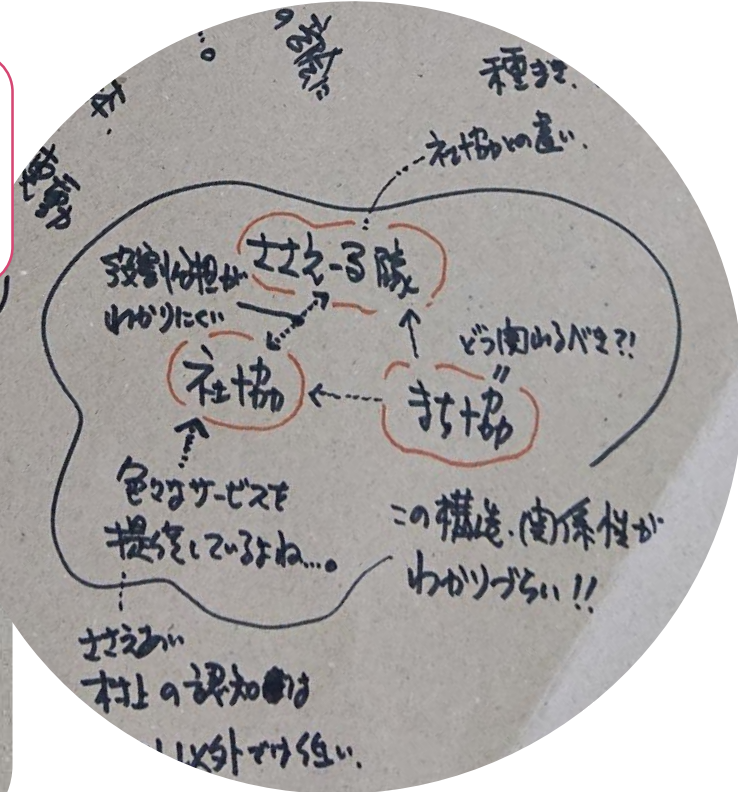 種まき、
社協との違い、
ささえーる隊
役割分担が
わかりにくい
どう関わるべき?!
社協
まち協
色々なサービスを
提供しているよね…。
この構造、関係性が
わかりづらい!!
ささえあい
村上の認知は
以外では低い、